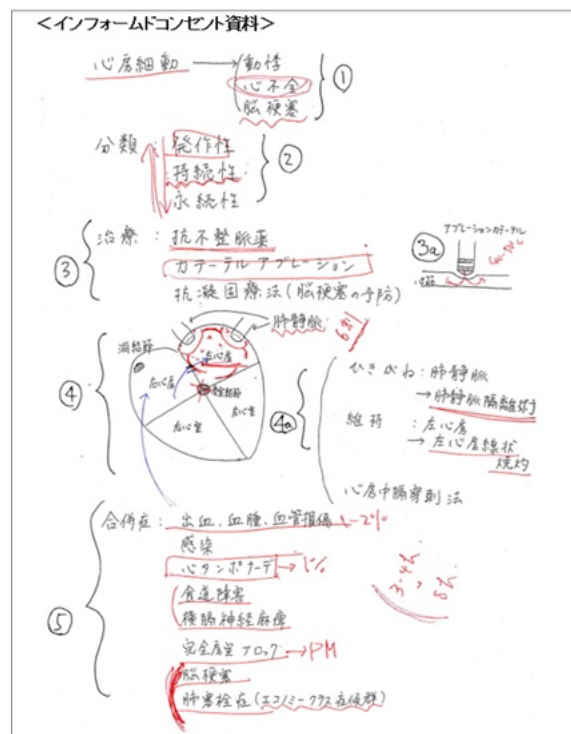 ＜インフォームドコンセント資料＞
心房細動 → 動悸
心不全
脳梗塞
①
分類：発作性
持続性
永続性
②
③
治療：抗不整脈薬
カテーテルアブレーション
抗凝固療法（脳梗塞の予防）
3a
アブレーションカテーテル
④
洞結節
肺静脈
6割
左心房
右心房
房室結節
左心室
右心室
4a
ひきがね：肺静脈
→肺静脈隔離術
維持：左心房
→左心房線状
焼灼
心房中隔穿刺法
⑤
合併症：出血、血腫、血管損傷 1-2%
感染
心タンポナーデ→1%
食道障害
横隔神経麻痺
完全房室ブロック→PM
脳梗塞
肺塞栓症（エコノミークラス症候群）